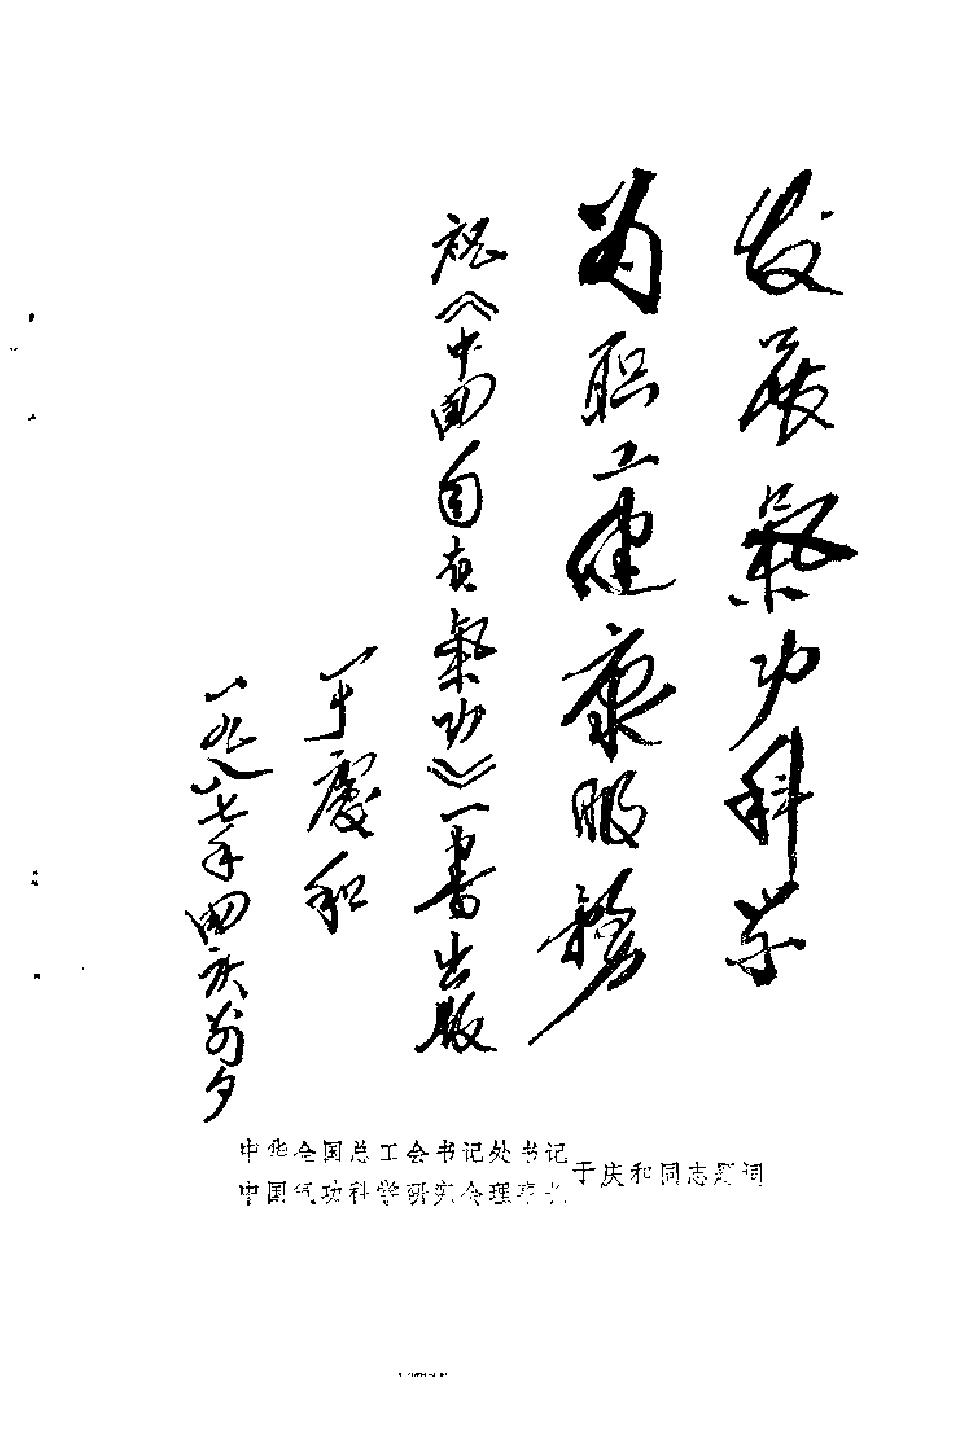 发展氣功科学
为职工健康服務
祝《中国自真氣功》一書出版
于慶和
一九八七年国庆前夕
中华全国总工会书记处书记
中国气功科学研究会理事长
于庆和同志题词